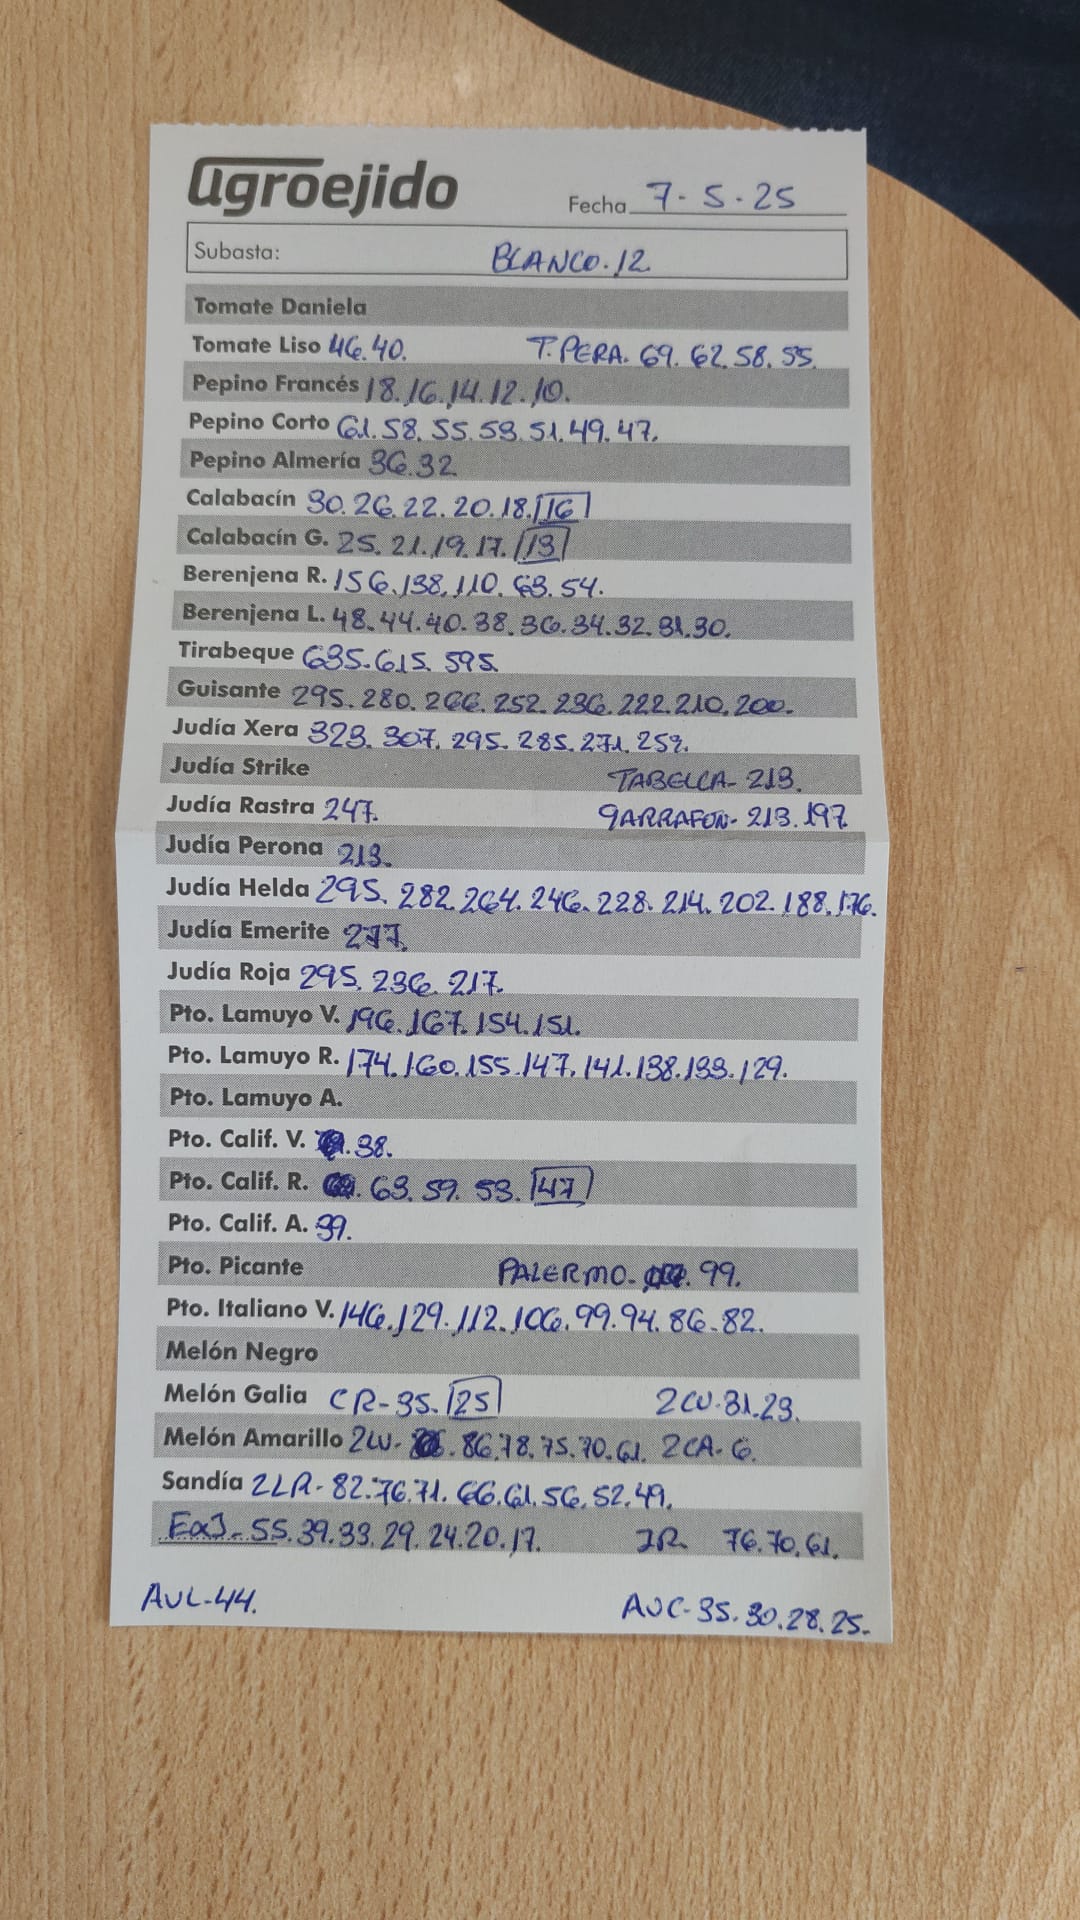 agroejido Fecha 7-5-25
Subasta: BLANCO.12
Tomate Daniela
Tomate Liso 46.40. T.PERA. 69.62.58.55.
Pepino Francés 18.16.14.12.10.
Pepino Corto 61.58.55.53.51.49.47.
Pepino Almería 36.32
Calabacín 30.26.22.20.18.16
Calabacín G. 25.21.19.17.13
Berenjena R. 156.138.110.63.54.
Berenjena L. 48.44.40.38.36.34.32.31.30.
Tirabeque 635.615.595.
Guisante 295.280.266.252.236.222.210.200.
Judía Xera 323.307.295.285.271.259.
Judía Strike TABELLA-213.
Judía Rastra 247. GARRAFON-213.197
Judía Perona 213.
Judía Helda 295.282.264.246.228.214.202.188.176.
Judía Emerite 277.
Judía Roja 295.236.217.
Pto. Lamuyo V. 196.167.154.151.
Pto. Lamuyo R. 174.160.155.147.141.138.133.129.
Pto. Lamuyo A.
Pto. Calif. V. .38.
Pto. Calif. R. .63.59.53.47
Pto. Calif. A. 39.
Pto. Picante PALERMO-.99.
Pto. Italiano V. 146.129.112.106.99.94.86-82.
Melón Negro
Melón Galia CR-35.25 2CU.31.23.
Melón Amarillo 2LU-.86.78.75.70.61. 2CA-6.
Sandía 2LR-82.76.71.66.61.56.52.49.
55.39.33.29.24.20.17. 2R 76.70.61.
AUL-44. AUC-35.30.28.25.